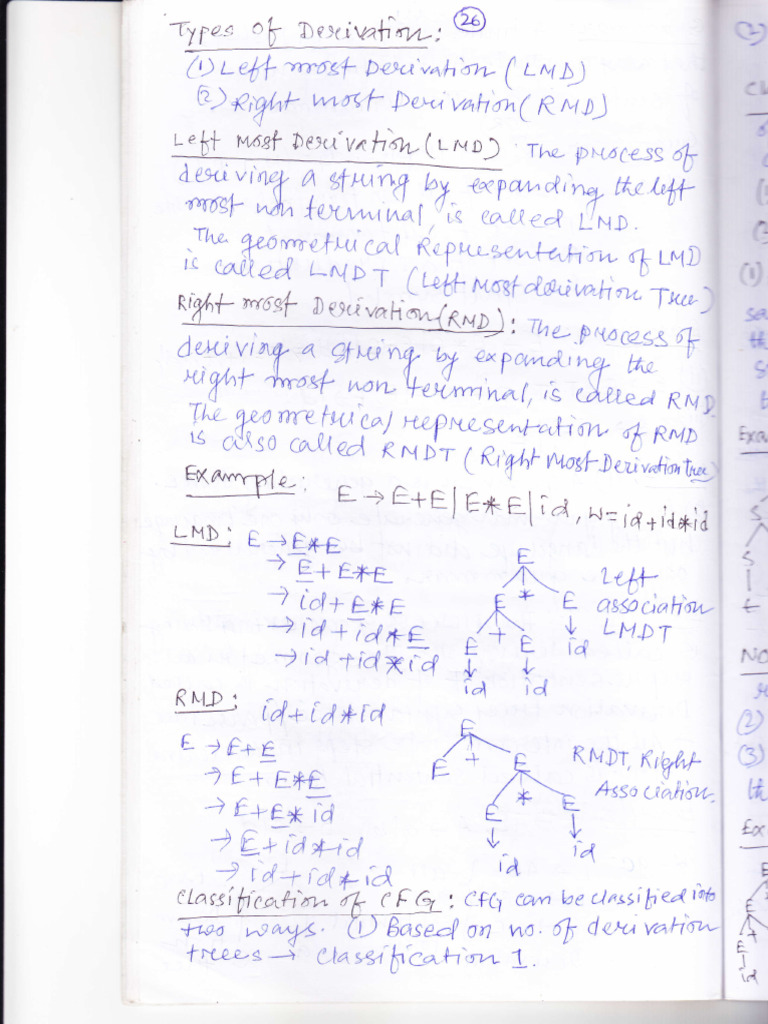 26
Types of Derivation:
(1) Left most Derivation (LMD)
(2) Right most Derivation (RMD)
Left Most Derivation (LMD) The process of
deriving a string by expanding the left
most non terminal, is called LMD.
The geometrical Representation of LMD
is called LMDT (Left Most derivation Tree)
Right most Derivation (RMD): The process of
deriving a string by expanding the
right most non terminal, is called RMD
The geometrical representation of RMD
is also called RMDT (Right Most Derivation tree)
Example: E → E+E | E*E | id, w=id+id*id
LMD: E → E*E
→ E + E*E
→ id + E*E
→ id + id*E
→ id + id*id
E
E * E
E + E id
id id
Left
association
LMDT
RMD: id+id*id
E → E+E
→ E + E*E
→ E+E* id
→ E+id*id
→ id+id*id
E
E + E
E * E
id id
RMDT, Right
Association.
Classification of CFG: CFG can be classified into
two ways. (1) Based on no. of derivation
trees → classification 1.
(2)
(1)
S
S
NO
(2)
(3)
E
E +
E
id